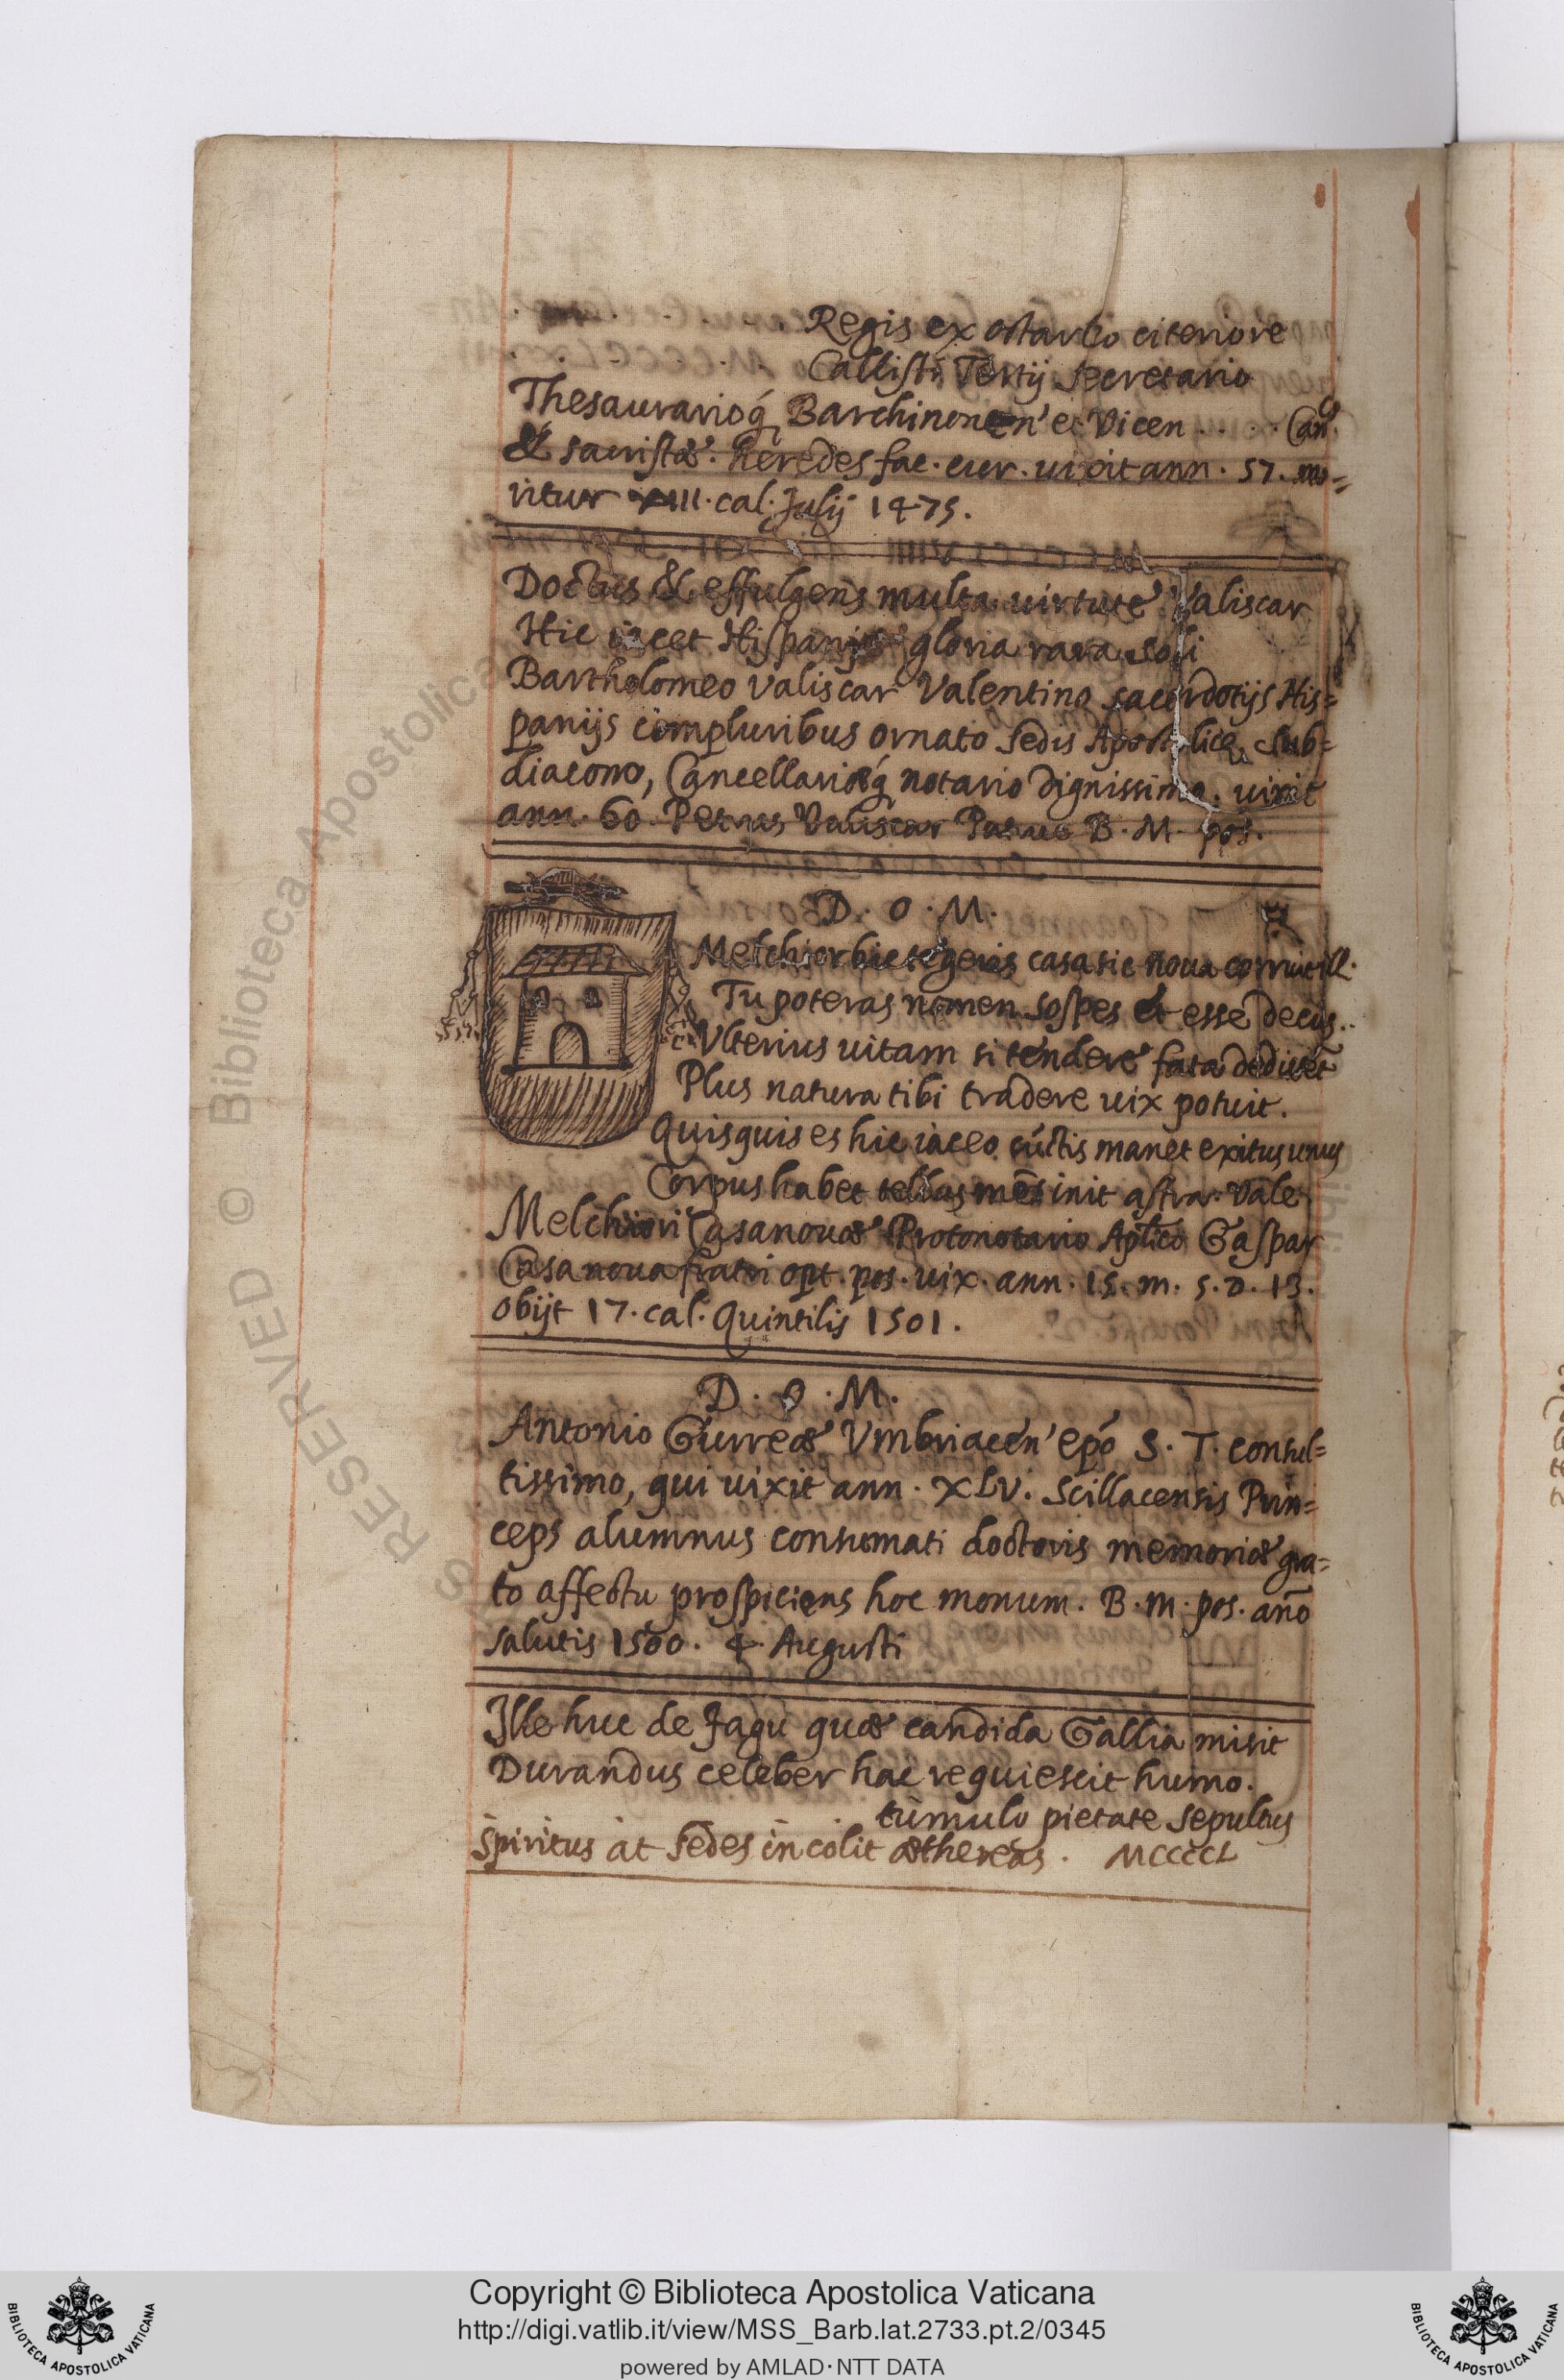 . . . . . Regis ex octavho citeriore
. . . . . Callisti Tertij secretario
Thesaurarioq́ Barchinonen' et Vicen . . . . Can.
& sacristæ. heredes fac. cur. uixit ann. 57. mo=
ritur XIII. cal. Julij 1475.
Doctus & effulgens multa uirtute Valiscar
Hic iacet Hispanjæ gloria rara soli
Bartholomeo Valiscar Valentino sacerdotijs His=
panijs compluribus ornato Sedis Apostolicę Sub=
diacono, Cancellariæq́ notario dignissimo. uixit
ann. 60. Petrus Valiscar Patruo B. M. pos.
D. O. M.
Melchior hic tegeris casa sic noua corruit ill.
Tu poteras nomen sospes et esse decus..
Vlterius uitam si tendere fata dediset̃
Plus natura tibi tradere uix potuit.
Quisquis es hic iaceo cũctis manet exitus unus
Corpus habet tellus mẽs init astra. Vale.
Melchiori Casanouæ Protonotario Aplico Gaspar
Casanoua fratri opt. pos. uix. ann. 15. m. 5. D. 13.
obijt 17. cal. Quintilis 1501.
D. O. M.
Antonio Gurreæ Vmbriacen' epo S. T. consul=
tissimo, qui uixit ann. XLV. Scillacensis Prin=
ceps alumnus consumati doctoris memoriæ gra=
to affectu prospiciens hoc monum. B. m. pos. año
salutis 1500. 4. Augusti
Ille huc de Jagu quæ candida Gallia misit
Durandus celeber hac requiescit humo.
. . . . tumulo pietate sepultus
Spiritus at sedes incolit æthereas. MCCCCL
RESERVED © Biblioteca Apostolica
Copyright © Biblioteca Apostolica Vaticana
http://digi.vatlib.it/view/MSS_Barb.lat.2733.pt.2/0345
powered by AMLAD·NTT DATA
BIBLIOTECA APOSTOLICA VATICANA
BIBLIOTECA APOSTOLICA VATICANA